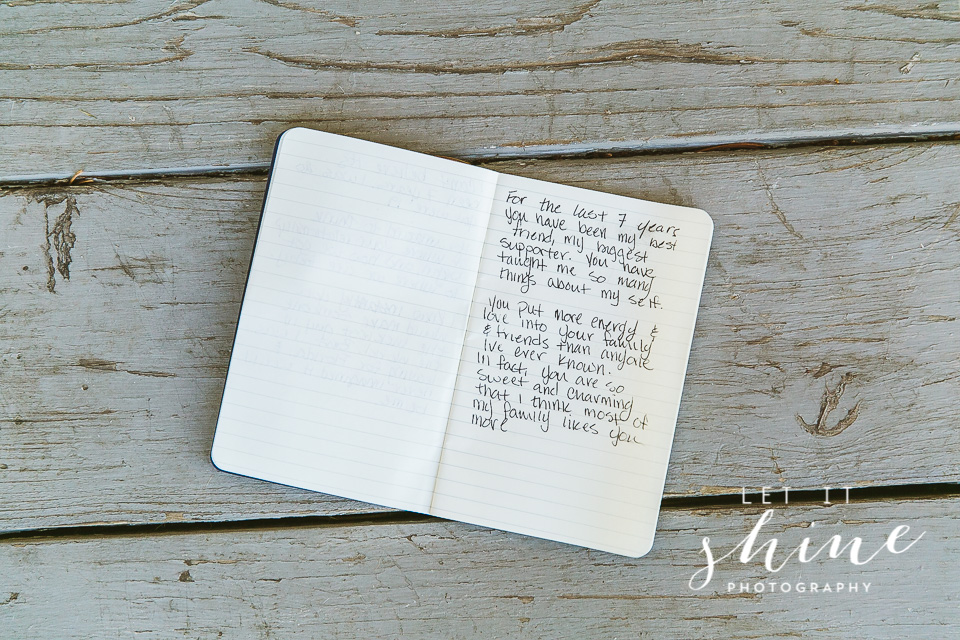 For the last 7 years
you have been my best
friend, my biggest
supporter. You have
taught me so many
things about my self.
You put more energy &
love into your family
& friends than anyone
I've ever known.
In fact, you are so
sweet and charming
that I think most of
my family likes you
more
LET IT
shine
PHOTOGRAPHY